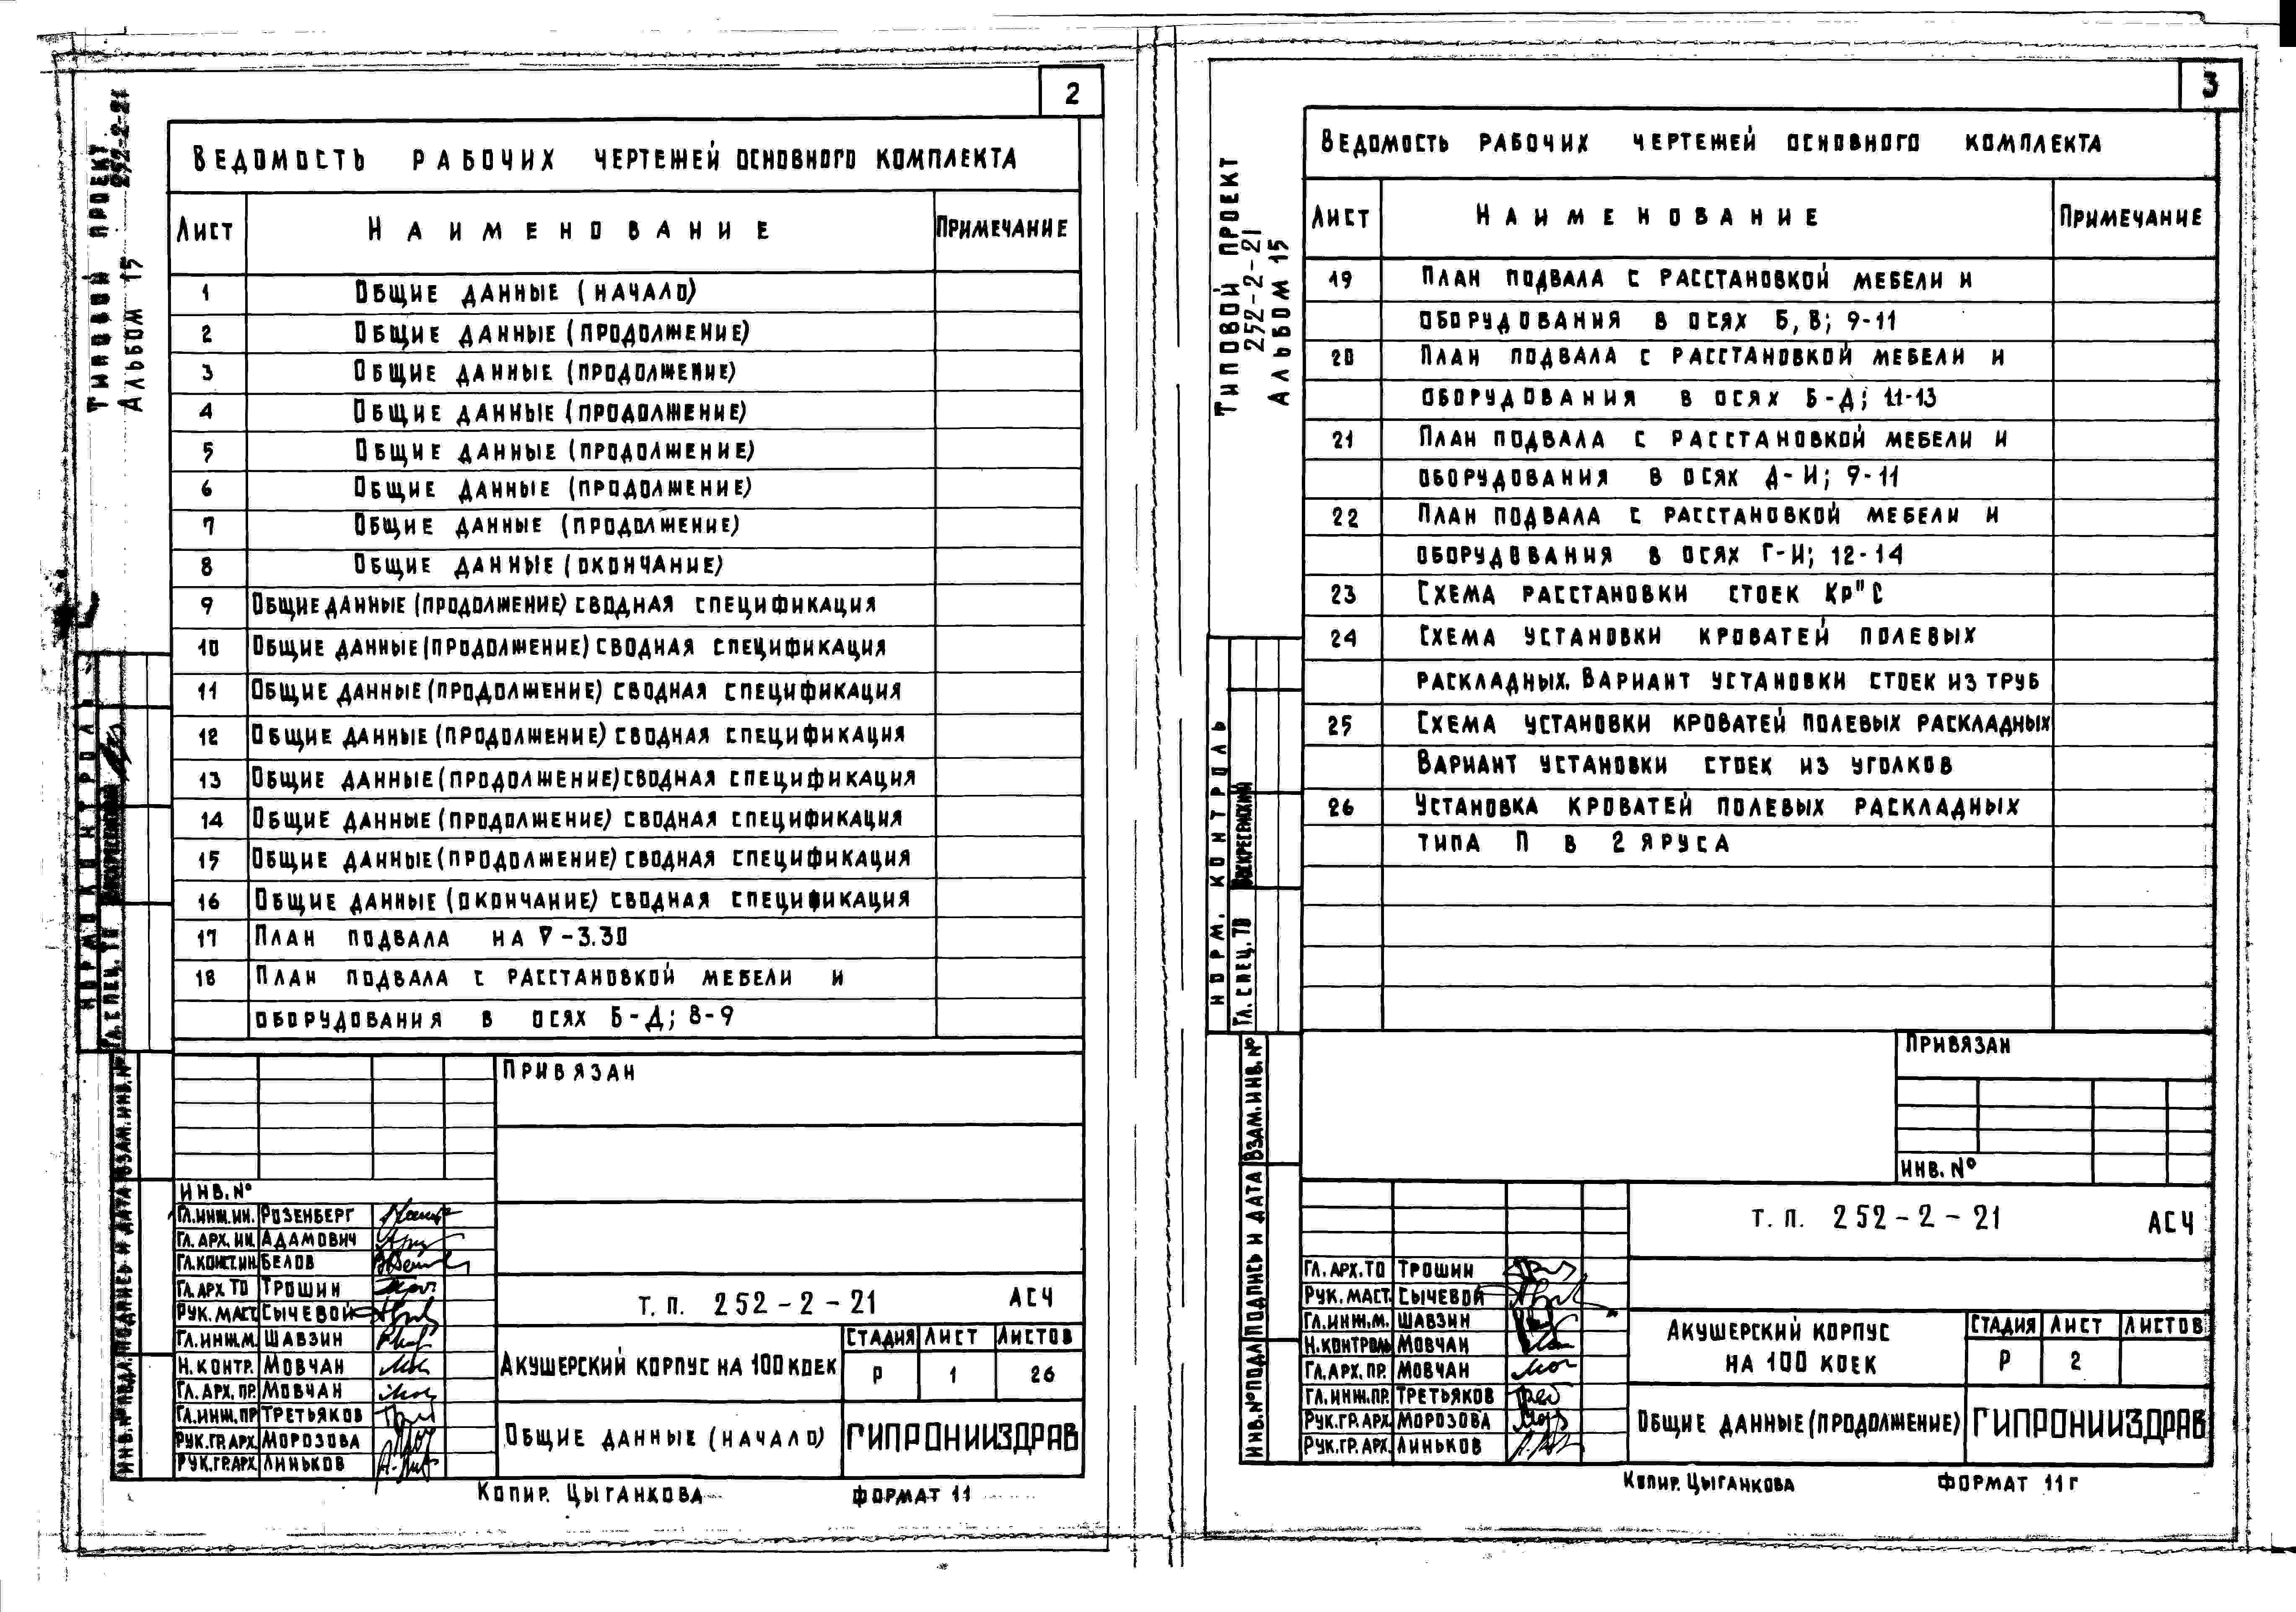 2
ТИПОВОЙ ПРОЕКТ
252-2-21
АЛЬБОМ 15
ВЕДОМОСТЬ РАБОЧИХ ЧЕРТЕЖЕЙ ОСНОВНОГО КОМПЛЕКТА
ЛИСТ НАИМЕНОВАНИЕ ПРИМЕЧАНИЕ
1 ОБЩИЕ ДАННЫЕ (НАЧАЛО)
2 ОБЩИЕ ДАННЫЕ (ПРОДОЛЖЕНИЕ)
3 ОБЩИЕ ДАННЫЕ (ПРОДОЛЖЕНИЕ)
4 ОБЩИЕ ДАННЫЕ (ПРОДОЛЖЕНИЕ)
5 ОБЩИЕ ДАННЫЕ (ПРОДОЛЖЕНИЕ)
6 ОБЩИЕ ДАННЫЕ (ПРОДОЛЖЕНИЕ)
7 ОБЩИЕ ДАННЫЕ (ПРОДОЛЖЕНИЕ)
8 ОБЩИЕ ДАННЫЕ (ОКОНЧАНИЕ)
9 ОБЩИЕ ДАННЫЕ (ПРОДОЛЖЕНИЕ) СВОДНАЯ СПЕЦИФИКАЦИЯ
10 ОБЩИЕ ДАННЫЕ (ПРОДОЛЖЕНИЕ) СВОДНАЯ СПЕЦИФИКАЦИЯ
11 ОБЩИЕ ДАННЫЕ (ПРОДОЛЖЕНИЕ) СВОДНАЯ СПЕЦИФИКАЦИЯ
12 ОБЩИЕ ДАННЫЕ (ПРОДОЛЖЕНИЕ) СВОДНАЯ СПЕЦИФИКАЦИЯ
13 ОБЩИЕ ДАННЫЕ (ПРОДОЛЖЕНИЕ) СВОДНАЯ СПЕЦИФИКАЦИЯ
14 ОБЩИЕ ДАННЫЕ (ПРОДОЛЖЕНИЕ) СВОДНАЯ СПЕЦИФИКАЦИЯ
15 ОБЩИЕ ДАННЫЕ (ПРОДОЛЖЕНИЕ) СВОДНАЯ СПЕЦИФИКАЦИЯ
16 ОБЩИЕ ДАННЫЕ (ОКОНЧАНИЕ) СВОДНАЯ СПЕЦИФИКАЦИЯ
17 ПЛАН ПОДВАЛА НА ∇ -3.30
18 ПЛАН ПОДВАЛА С РАССТАНОВКОЙ МЕБЕЛИ И
ОБОРУДОВАНИЯ В ОСЯХ Б-Д; 8-9
НОРМОКОНТРОЛЬ
ГЛ. СПЕЦ. ТО ВОСКРЕСЕНСКИЙ
ВЗАМ. ИНВ. №
ПОДПИСЬ И ДАТА
ИНВ. № ПОДЛ.
ПРИВЯЗАН
ИНВ. №
ГЛ. ИНЖ. ИН. РОЗЕНБЕРГ
ГЛ. АРХ. ИН. АДАМОВИЧ
ГЛ. КОНСТ. ИН. БЕЛОВ
ГЛ. АРХ. ТО ТРОШИН
РУК. МАСТ. СЫЧЕВОЙ
ГЛ. ИНЖ. М. ШАВЗИН
Н. КОНТР. МОВЧАН
ГЛ. АРХ. ПР. МОВЧАН
ГЛ. ИНЖ. ПР ТРЕТЬЯКОВ
РУК. ГР. АРХ. МОРОЗОВА
РУК. ГР. АРХ. ЛИНЬКОВ
Т. П. 252-2-21 АСЧ
АКУШЕРСКИЙ КОРПУС НА 100 КОЕК
СТАДИЯ ЛИСТ ЛИСТОВ
Р 1 26
ОБЩИЕ ДАННЫЕ (НАЧАЛО)
ГИПРОНИИЗДРАВ
КОПИР. ЦЫГАНКОВА ФОРМАТ 11
3
ТИПОВОЙ ПРОЕКТ
252-2-21
АЛЬБОМ 15
ВЕДОМОСТЬ РАБОЧИХ ЧЕРТЕЖЕЙ ОСНОВНОГО КОМПЛЕКТА
ЛИСТ НАИМЕНОВАНИЕ ПРИМЕЧАНИЕ
19 ПЛАН ПОДВАЛА С РАССТАНОВКОЙ МЕБЕЛИ И
ОБОРУДОВАНИЯ В ОСЯХ Б, В; 9-11
20 ПЛАН ПОДВАЛА С РАССТАНОВКОЙ МЕБЕЛИ И
ОБОРУДОВАНИЯ В ОСЯХ Б-Д; 11-13
21 ПЛАН ПОДВАЛА С РАССТАНОВКОЙ МЕБЕЛИ И
ОБОРУДОВАНИЯ В ОСЯХ Д-И; 9-11
22 ПЛАН ПОДВАЛА С РАССТАНОВКОЙ МЕБЕЛИ И
ОБОРУДОВАНИЯ В ОСЯХ Г-И; 12-14
23 СХЕМА РАССТАНОВКИ СТОЕК КР"С
24 СХЕМА УСТАНОВКИ КРОВАТЕЙ ПОЛЕВЫХ
РАСКЛАДНЫХ. ВАРИАНТ УСТАНОВКИ СТОЕК ИЗ ТРУБ
25 СХЕМА УСТАНОВКИ КРОВАТЕЙ ПОЛЕВЫХ РАСКЛАДНЫХ
ВАРИАНТ УСТАНОВКИ СТОЕК ИЗ УГОЛКОВ
26 УСТАНОВКА КРОВАТЕЙ ПОЛЕВЫХ РАСКЛАДНЫХ
ТИПА П В 2 ЯРУСА
НОРМ. КОНТРОЛЬ
ГЛ. СПЕЦ. ТО ВОСКРЕСЕНСКИЙ
ВЗАМ. ИНВ. №
ПОДПИСЬ И ДАТА
ИНВ. № ПОДЛ
ПРИВЯЗАН
ИНВ. №
Т. П. 252-2-21 АСЧ
ГЛ. АРХ. ТО ТРОШИН
РУК. МАСТ. СЫЧЕВОЙ
ГЛ. ИНЖ. М. ШАВЗИН
Н. КОНТРОЛЬ МОВЧАН
ГЛ. АРХ. ПР. МОВЧАН
ГЛ. ИНЖ. ПР. ТРЕТЬЯКОВ
РУК. ГР. АРХ. МОРОЗОВА
РУК. ГР. АРХ. ЛИНЬКОВ
АКУШЕРСКИЙ КОРПУС
НА 100 КОЕК
СТАДИЯ ЛИСТ ЛИСТОВ
Р 2
ОБЩИЕ ДАННЫЕ (ПРОДОЛЖЕНИЕ)
ГИПРОНИИЗДРАВ
КОПИР. ЦЫГАНКОВА ФОРМАТ 11 Г